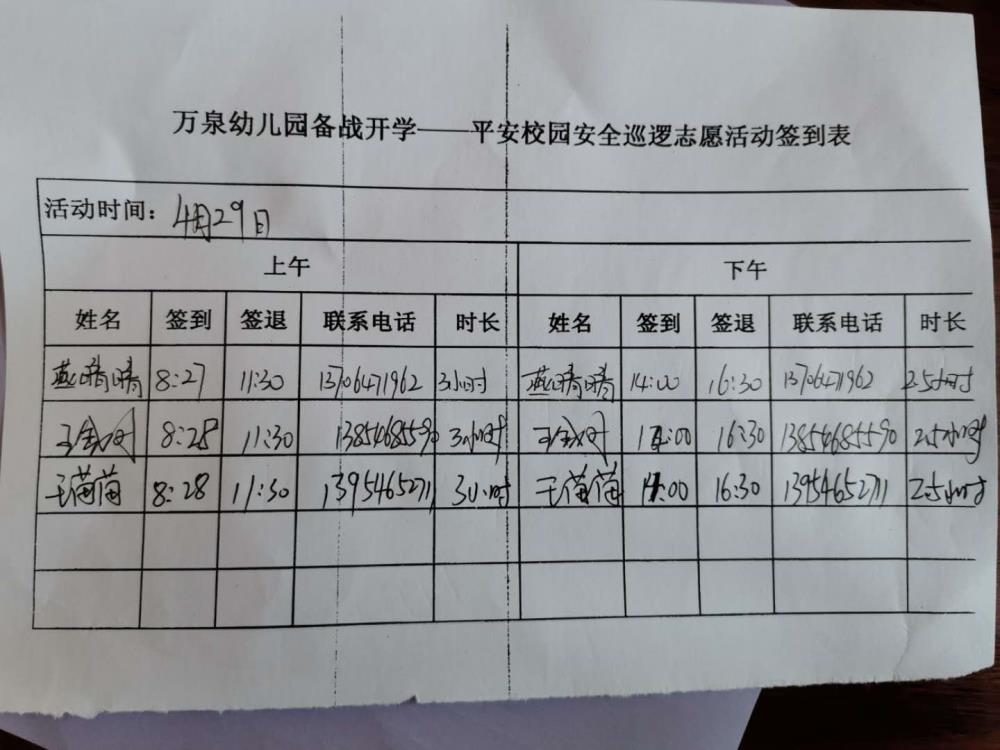 万泉幼儿园备战开学——平安校园安全巡逻志愿活动签到表
活动时间：4月29日
上午 下午
姓名 签到 签退 联系电话 时长 姓名 签到 签退 联系电话 时长
燕晴晴 8:27 11:30 13706471962 3小时 燕晴晴 14:00 16:30 13706471962 2.5小时
8:28 11:30 13854685590 3小时 14:00 16:30 13854685590 2.5小时
王苗苗 8:28 11:30 13954652711 3小时 王苗苗 14:00 16:30 13954652711 2.5小时